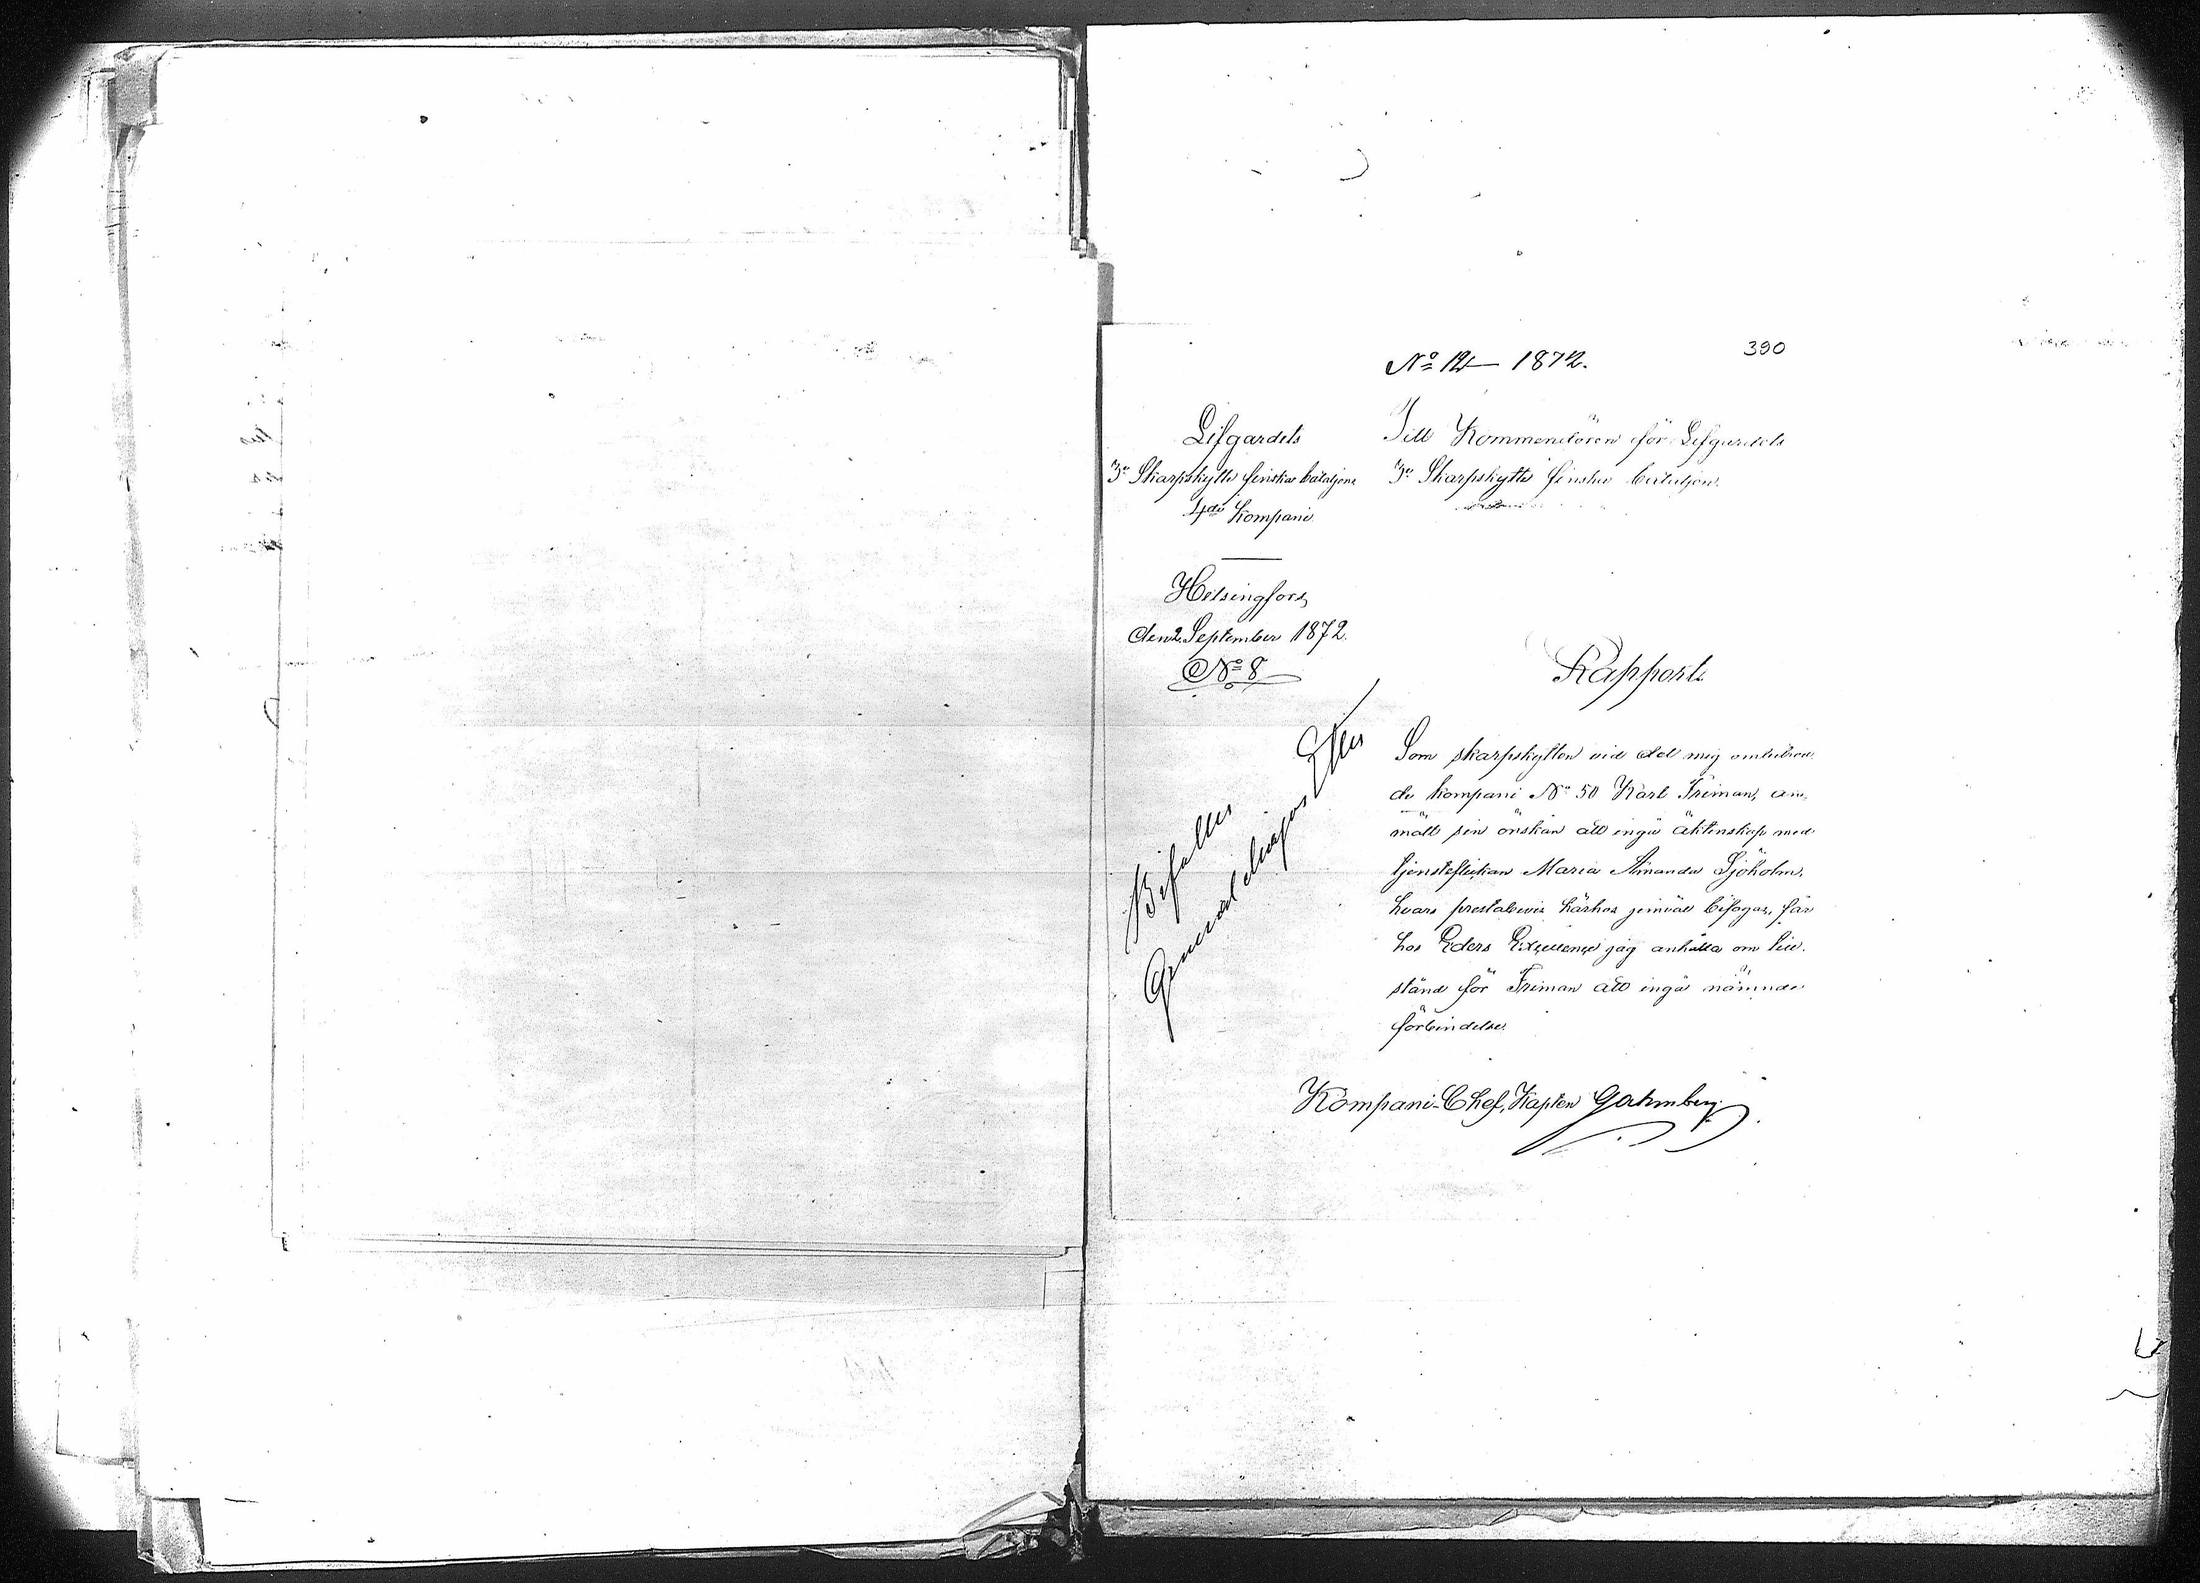 390
No 12 — 1872.
Lifgardets
3e Skarpskytte finska bataljons
4de Kompani
Helsingfors,
den 2 September 1872.
No 8
Till Kommendören för Lifgardets
3e Skarpskytte finska bataljon.
Rapport.
Som skarpskytten vid det mig ombetrod-
de kompani No 50 Karl Friman, an-
mält sin önskan att ingå äktenskap med
tjensteflickan Maria Amanda Sjöholm,
hvars prestabevis härhos jemväl bifogas, får
hos Eders Excellence jag anhålla om till-
stånd för Friman att ingå nämnde
förbindelse.
Kompani-Chef, Kapten Gahmberg.
Bifalles
General Major